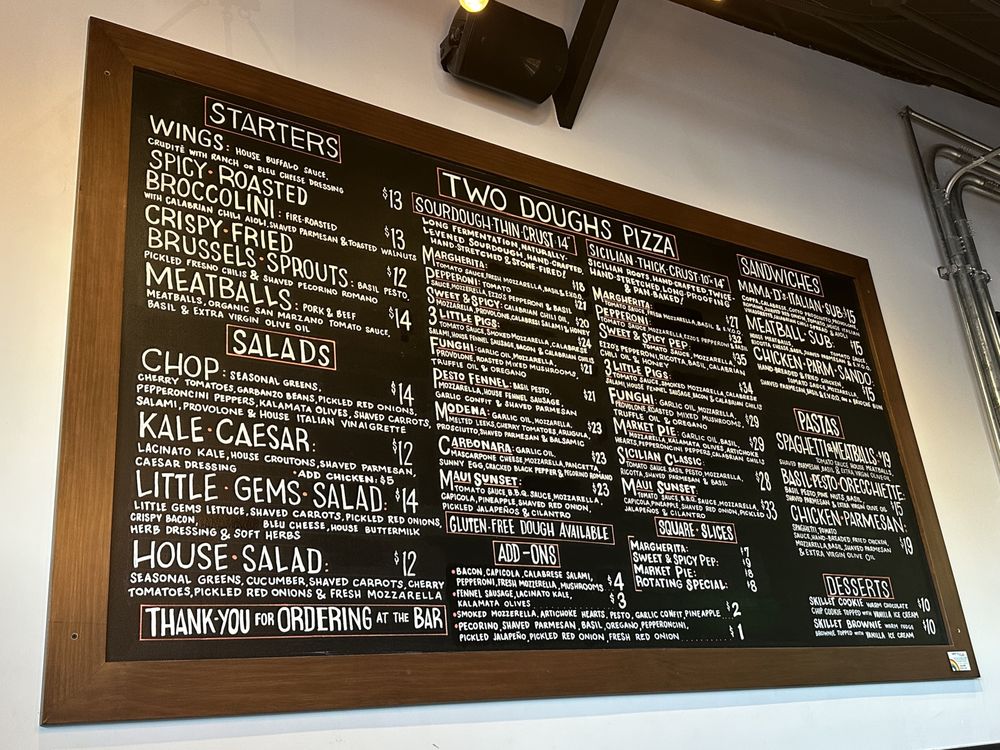 STARTERS
WINGS: HOUSE BUFFALO SAUCE,
CRUDITÉ WITH RANCH OR BLEU CHEESE DRESSING $13
SPICY·ROASTED
BROCCOLINI: FIRE-ROASTED
WITH CALABRIAN CHILI AIOLI, SHAVED PARMESAN & TOASTED WALNUTS $13
CRISPY·FRIED
BRUSSELS·SPROUTS: BASIL PESTO, $12
PICKLED FRESNO CHILIS & SHAVED PECORINO ROMANO
MEATBALLS: PORK & BEEF $14
MEATBALLS, ORGANIC SAN MARZANO TOMATO SAUCE,
BASIL & EXTRA VIRGIN OLIVE OIL
SALADS
CHOP: SEASONAL GREENS, $14
CHERRY TOMATOES, GARBANZO BEANS, PICKLED RED ONIONS,
PEPPERONCINI PEPPERS, KALAMATA OLIVES, SHAVED CARROTS,
SALAMI, PROVOLONE & HOUSE ITALIAN VINAIGRETTE
KALE·CAESAR: $12
LACINATO KALE, HOUSE CROUTONS, SHAVED PARMESAN,
CAESAR DRESSING ·ADD CHICKEN: $5
LITTLE·GEMS·SALAD: $14
LITTLE GEMS LETTUCE, SHAVED CARROTS, PICKLED RED ONIONS,
CRISPY BACON, BLEU CHEESE, HOUSE BUTTERMILK
HERB DRESSING & SOFT HERBS
HOUSE·SALAD: $12
SEASONAL GREENS, CUCUMBER, SHAVED CARROTS, CHERRY
TOMATOES, PICKLED RED ONIONS & FRESH MOZZARELLA
THANK·YOU FOR ORDERING AT THE BAR
TWO DOUGHS PIZZA
SOURDOUGH·THIN·CRUST·14"
LONG FERMENTATION, NATURALLY-
LEVENED SOURDOUGH, HAND-CRAFTED,
HAND-STRETCHED & STONE-FIRED!
MARGHERITA: $18
TOMATO SAUCE, FRESH MOZZARELLA, BASIL & E.V.O.O.
PEPPERONI: TOMATO $21
SAUCE, MOZZARELLA, EZZO'S PEPPERONI & BASIL
SWEET & SPICY: CALABRIAN CHILI OIL $20
MOZZARELLA, PROVOLONE, CALABRESE SALAMI & HONEY
3 LITTLE PIGS: $24
TOMATO SAUCE, SMOKED MOZZARELLA, CALABRESE
SALAMI, HOUSE FENNEL SAUSAGE, BACON & CALABRIAN CHILIS
FUNGHI: GARLIC OIL, MOZZARELLA, $21
PROVOLONE, ROASTED MIXED MUSHROOMS,
TRUFFLE OIL & OREGANO
PESTO FENNEL: BASIL PESTO, $21
MOZZARELLA, HOUSE FENNEL SAUSAGE,
GARLIC CONFIT & SHAVED PARMESAN
MODENA: GARLIC OIL, MOZZARELLA, $23
MELTED LEEKS, CHERRY TOMATOES, ARUGULA,
PROSCIUTTO, SHAVED PARMESAN & BALSAMIC
CARBONARA: GARLIC OIL, $23
MASCARPONE CHEESE, MOZZARELLA, PANCETTA,
SUNNY EGG, CRACKED BLACK PEPPER & PECORINO ROMANO
MAUI SUNSET: $23
TOMATO SAUCE, B.B.Q. SAUCE, MOZZARELLA,
CAPICOLA, PINEAPPLE, SHAVED RED ONION,
PICKLED JALAPEÑOS & CILANTRO
GLUTEN-FREE DOUGH AVAILABLE
ADD-ONS
·BACON, CAPICOLA, CALABRESE SALAMI,
PEPPERONI, FRESH MOZZARELLA, MUSHROOMS $4
·FENNEL SAUSAGE, LACINATO KALE,
KALAMATA OLIVES $3
·SMOKED MOZZARELLA, ARTICHOKE HEARTS, PESTO, GARLIC CONFIT, PINEAPPLE $2
·PECORINO, SHAVED PARMESAN, BASIL, OREGANO, PEPPERONCINI,
PICKLED JALAPEÑO, PICKLED RED ONION, FRESH RED ONION $1
SICILIAN·THICK·CRUST·10"×14"
SICILIAN ROOTS, HAND-CRAFTED, TWICE-
STRETCHED, LONG PROOFING
& PAN-BAKED!
MARGHERITA: $27
TOMATO SAUCE, FRESH MOZZARELLA, BASIL & E.V.O.O.
PEPPERONI: $32
TOMATO SAUCE, MOZZARELLA, EZZO'S PEPPERONI & BASIL
SWEET & SPICY PEP: $35
TOMATO SAUCE, MOZZARELLA,
EZZO'S PEPPERONI, RICOTTA, BASIL, CALABRIAN
CHILI OIL & HONEY
3 LITTLE PIGS: $34
TOMATO SAUCE, SMOKED MOZZARELLA, CALABRESE
SALAMI, HOUSE FENNEL SAUSAGE, BACON & CALABRIAN CHILIS
FUNGHI: GARLIC OIL, MOZZARELLA, $29
PROVOLONE, ROASTED MIXED MUSHROOMS,
TRUFFLE OIL & OREGANO
MARKET PIE: GARLIC OIL, BASIL, $29
MOZZARELLA, KALAMATA OLIVES, ARTICHOKE
HEARTS, PEPPERONCINI PEPPERS, CALABRIAN CHILIS
SICILIAN CLASSIC: $28
TOMATO SAUCE, BASIL PESTO, MOZZARELLA,
RICOTTA, SHAVED PARMESAN & BASIL
MAUI SUNSET: $33
TOMATO SAUCE, B.B.Q. SAUCE, MOZZARELLA,
CAPICOLA, PINEAPPLE, SHAVED RED ONION, PICKLED
JALAPEÑOS & CILANTRO
SQUARE·SLICES
MARGHERITA: $7
SWEET & SPICY PEP: $9
MARKET PIE: $8
ROTATING SPECIAL: $8
SANDWICHES
MAMA·D'S·ITALIAN·SUB: $15
MEATBALL·SUB: $15
CHICKEN·PARM·SANDO: $15
HAND-BREADED & FRIED CHICKEN,
TOMATO SAUCE, MOZZARELLA,
PASTAS
SPAGHETTI & MEATBALLS: $19
TOMATO SAUCE, HOUSE MEATBALLS,
SHAVED PARMESAN, BASIL & EXTRA VIRGIN OLIVE OIL
BASIL·PESTO·ORECCHIETTE: $15
BASIL PESTO, PINE NUTS, BASIL,
SHAVED PARMESAN & EXTRA VIRGIN OLIVE OIL
CHICKEN·PARMESAN: $19
SPAGHETTI, TOMATO
SAUCE, HAND-BREADED FRIED CHICKEN,
MOZZARELLA, BASIL, SHAVED PARMESAN
& EXTRA VIRGIN OLIVE OIL
DESSERTS
SKILLET COOKIE WARM CHOCOLATE $10
CHIP COOKIE TOPPED WITH VANILLA ICE CREAM
SKILLET BROWNIE WARM FUDGE $10
BROWNIE TOPPED WITH VANILLA ICE CREAM